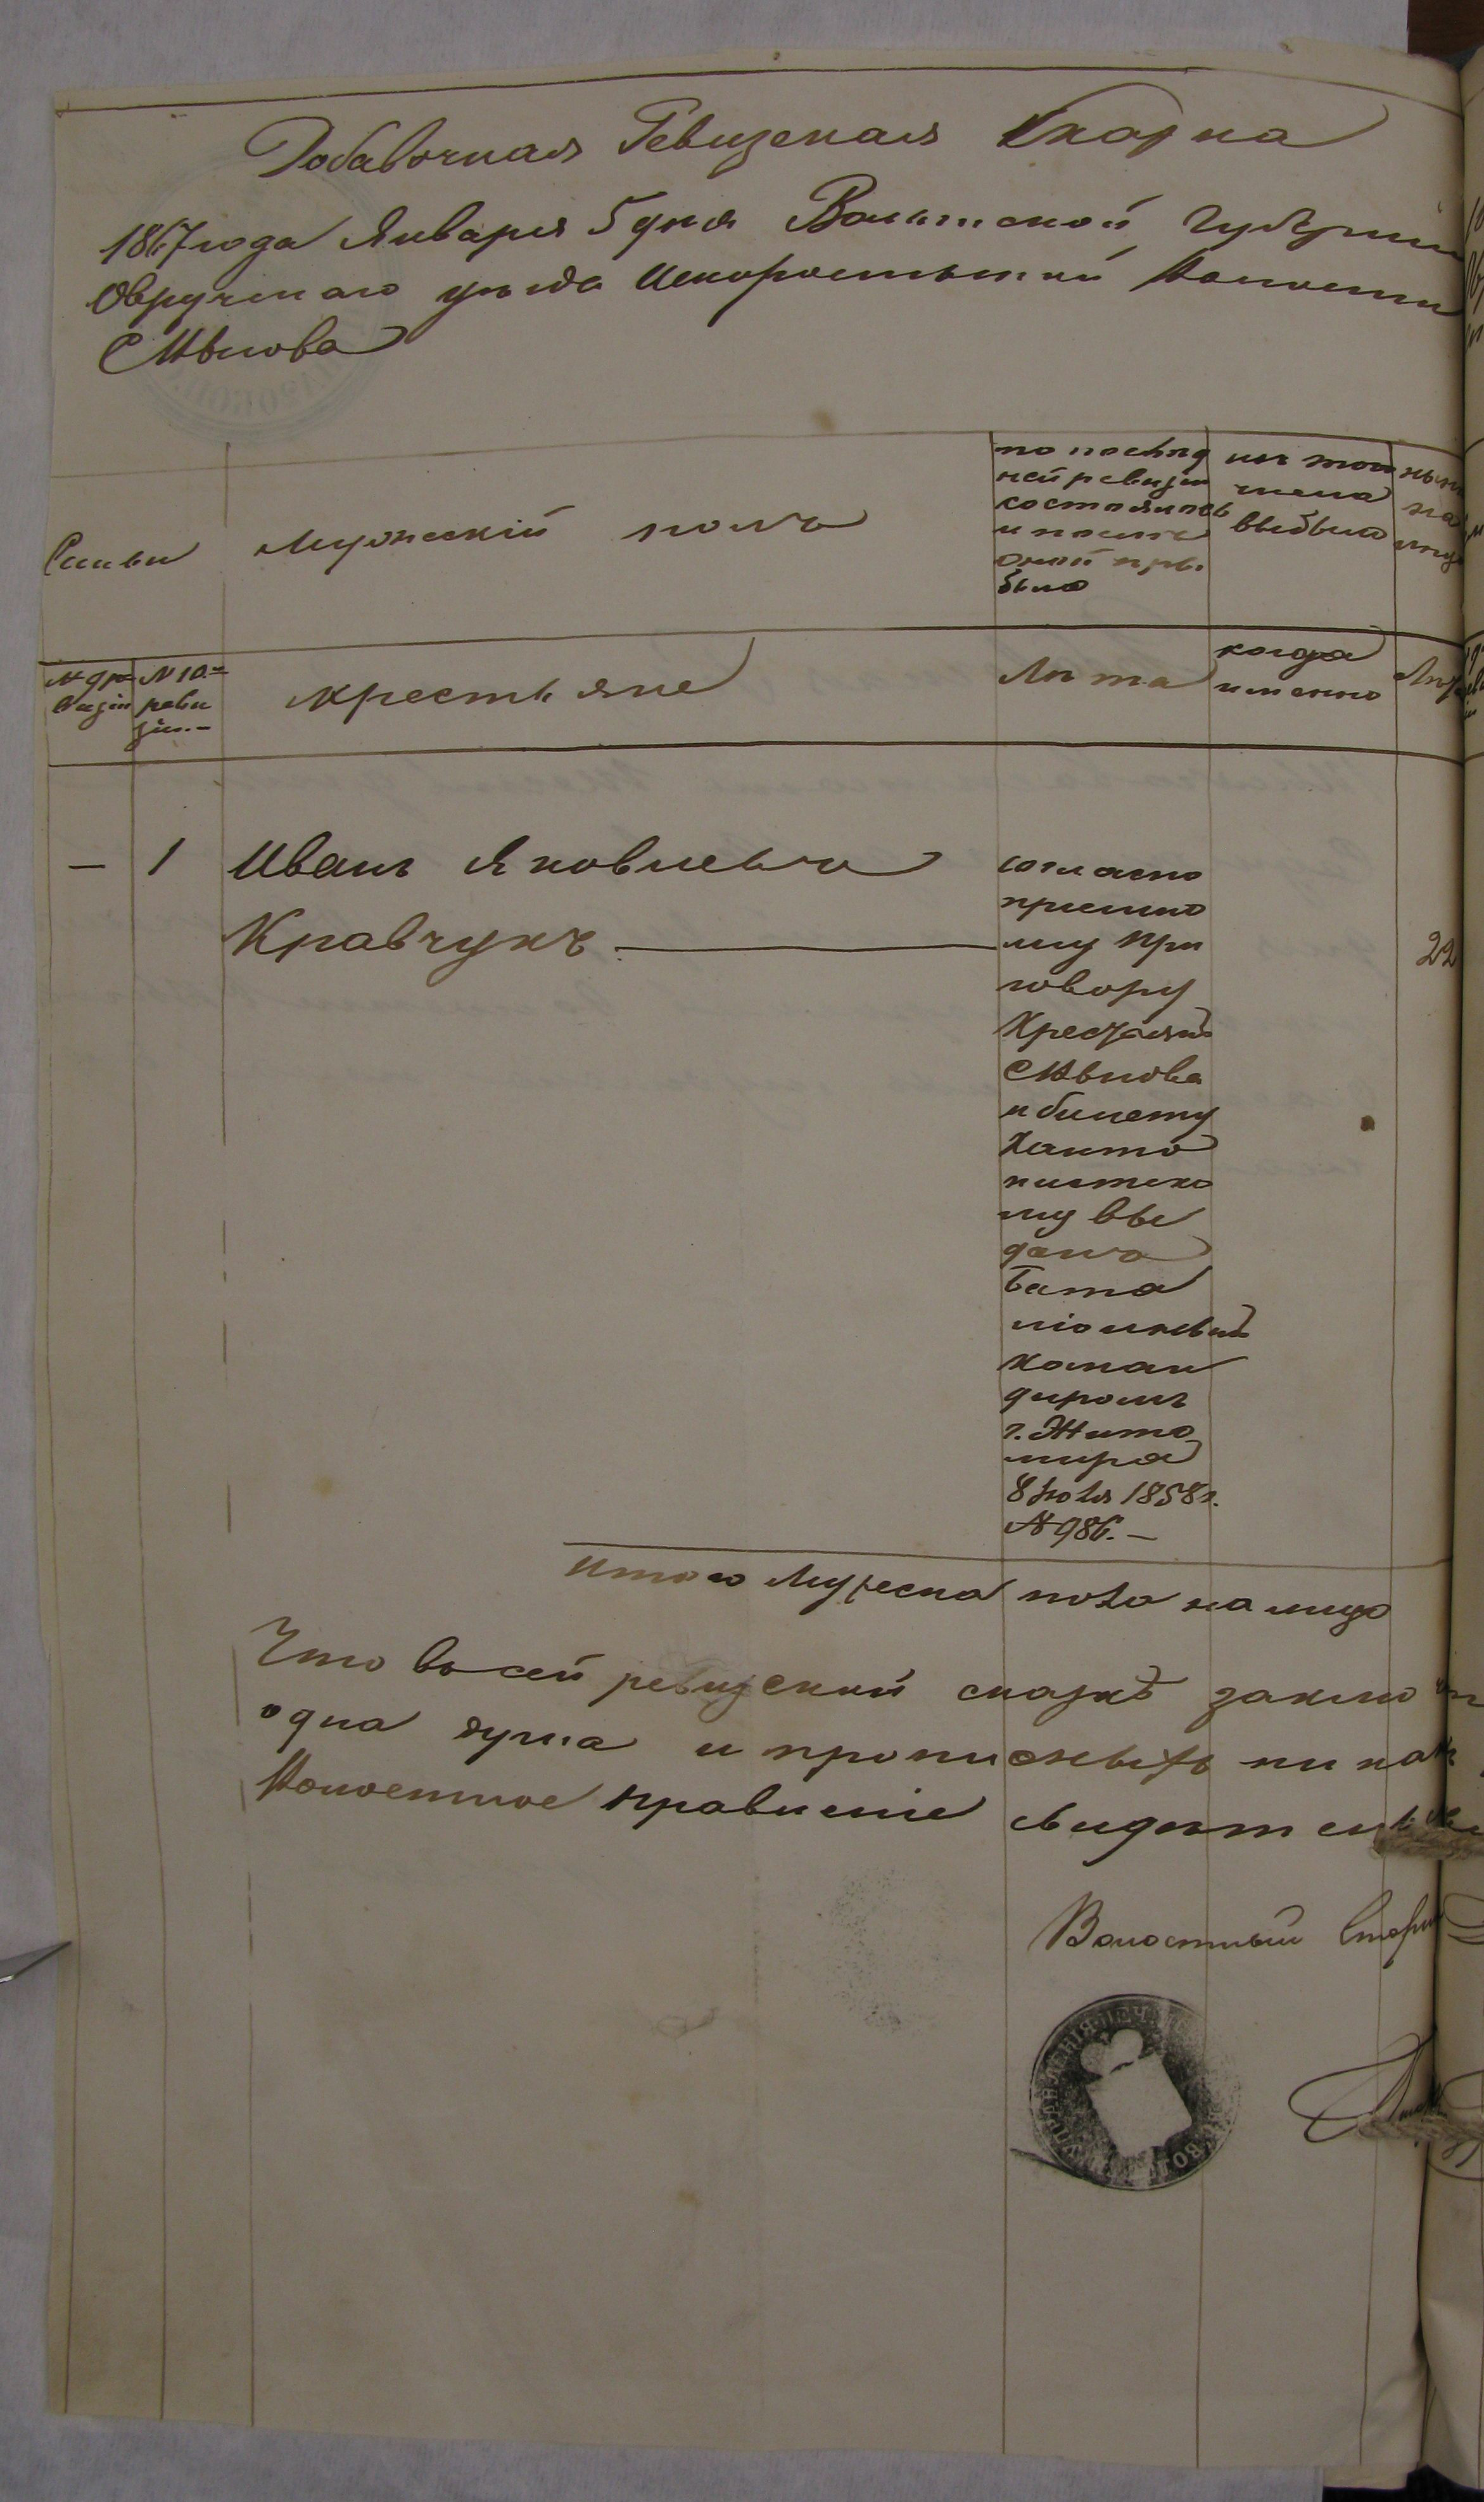 Добавочная Ревизская Сказка
1867 года Января 5 дня Волынской Губерніи
Овручскаго уѣзда Искоростьской Волости
С Мѣлова
Семьи
Мужескій полъ
по послѣд
ней ревизіи
состоялось
и послѣ
оной при
было
изъ того
числа
выбыло
нынѣ
на
лицо
№ 9 ре
визіи
№ 10й
реви
зіи.—
Крестьяне
Лѣта
когда
именно
Лѣта
— 1 Иванъ Яковлевъ
Кравчукъ — 22
согласно
пріемно
му при
говору
Крестьянъ
С Мѣлова
и билету
Канто
нистско
му вы
данъ
Бата
ліоннымъ
коман
диромъ
г. Жито
мира
8 Іюля 1858 г.
№ 986.—
Итого Мужеска пола на лицо
Что въ сей ревизской сказкѣ заклю
одна душа и прописныхъ ни
Волостное Правленіе свидѣтель
Волостный Стар